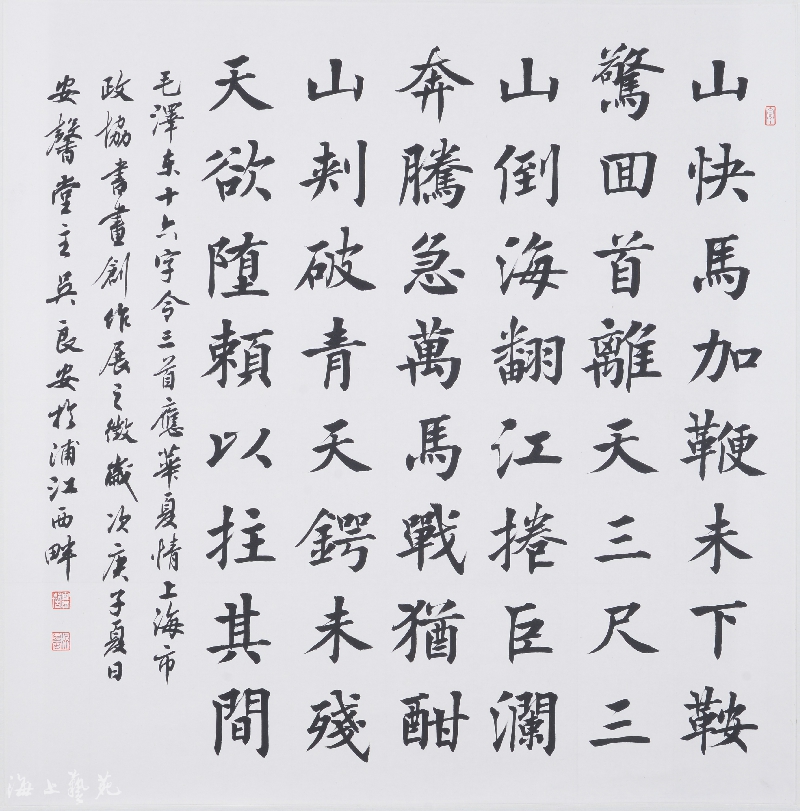 山快馬加鞭未下鞍
驚回首離天三尺三
山倒海翻江捲巨瀾
奔騰急萬馬戰猶酣
山刺破青天鍔未殘
天欲墮賴以拄其間
毛澤东十六字令三首應華夏情上海市
政協書畫創作展之徵歲次庚子夏日
安馨堂主吳良安於浦江西畔
海上藝苑